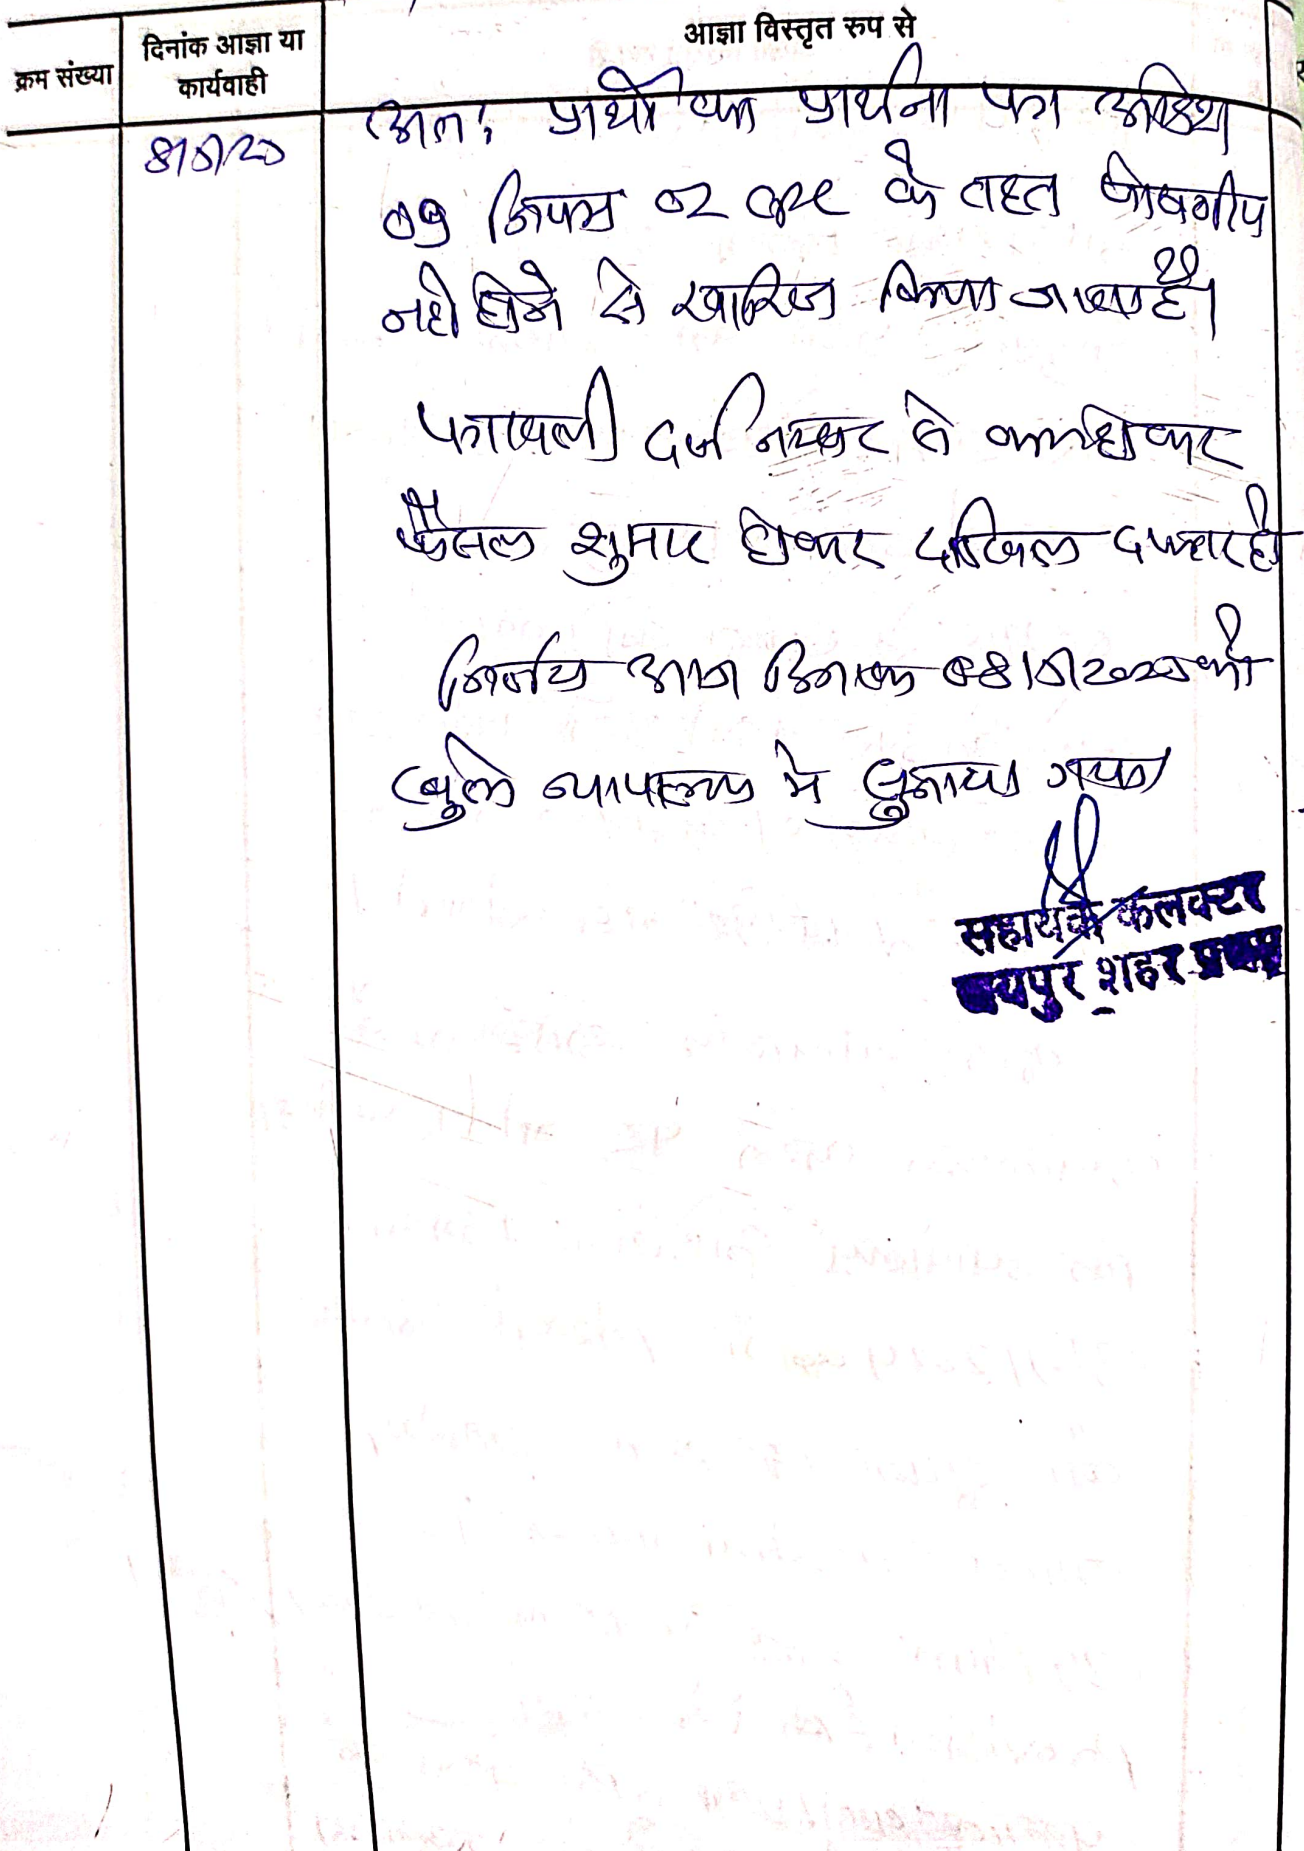 क्रम संख्या
दिनांक आज्ञा या
कार्यवाही
आज्ञा विस्तृत रुप से
अतः प्रार्थी का प्रार्थना पत्र आदेश
नियम 02 के तहत पोषणीय
नही होने से खारिज किया जाता है।
पत्रावली दर्ज नम्बर से कम होकर
फैसल शुमार होकर दाखिल दफ्तर हो
निर्णय आज दिनांक को
खुले न्यायालय मे सुनाया गया
सहायक कलक्टर
जयपुर शहर प्रथम